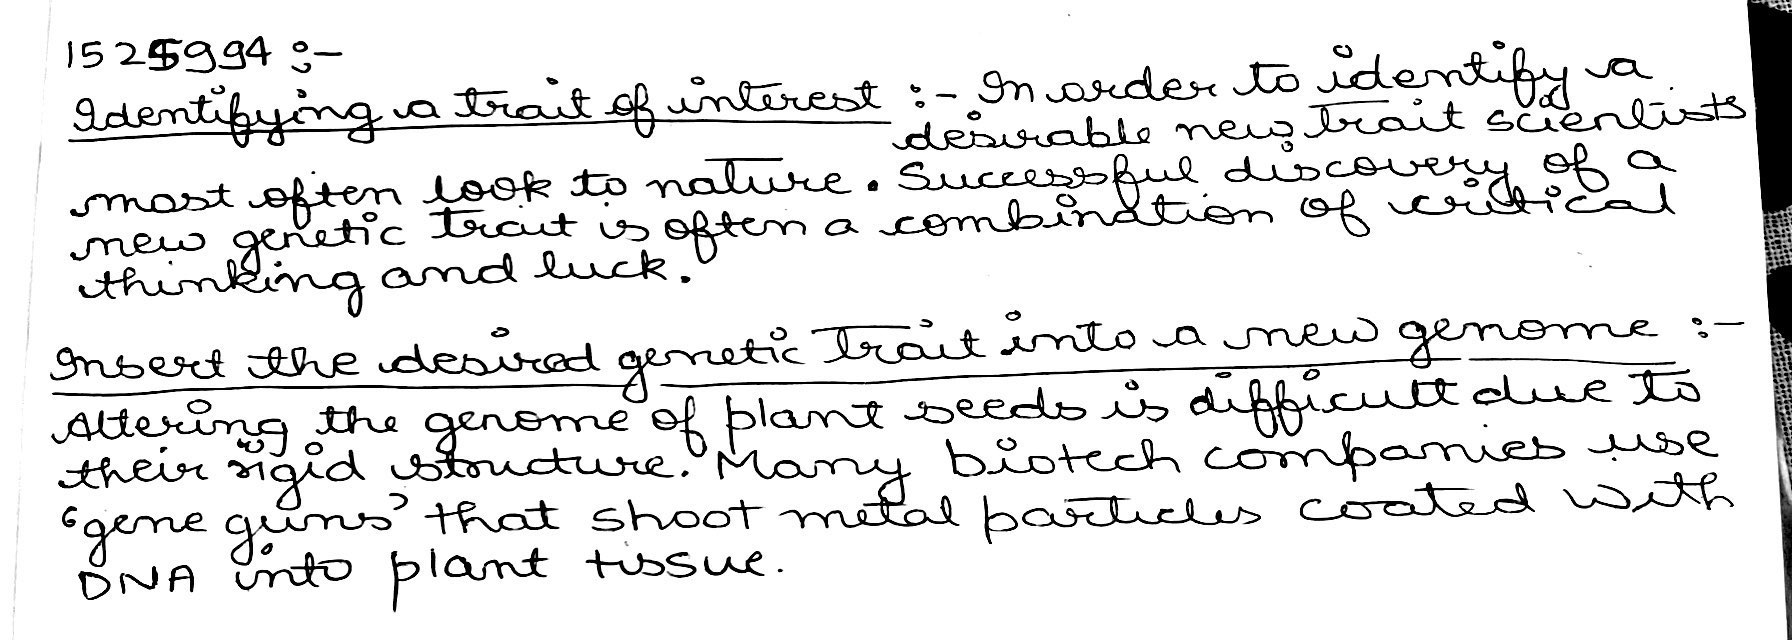 1525994 :-
Identifying a trait of interest :- In order to identify a
desirable new trait scientists
most often look to nature. Successful discovery of a
new genetic trait is often a combination of critical
thinking and luck.
Insert the desired genetic trait into a new genome :-
Altering the genome of plant seeds is difficult due to
their rigid structure. Many biotech companies use
'gene guns' that shoot metal particles coated with
DNA into plant tissue.